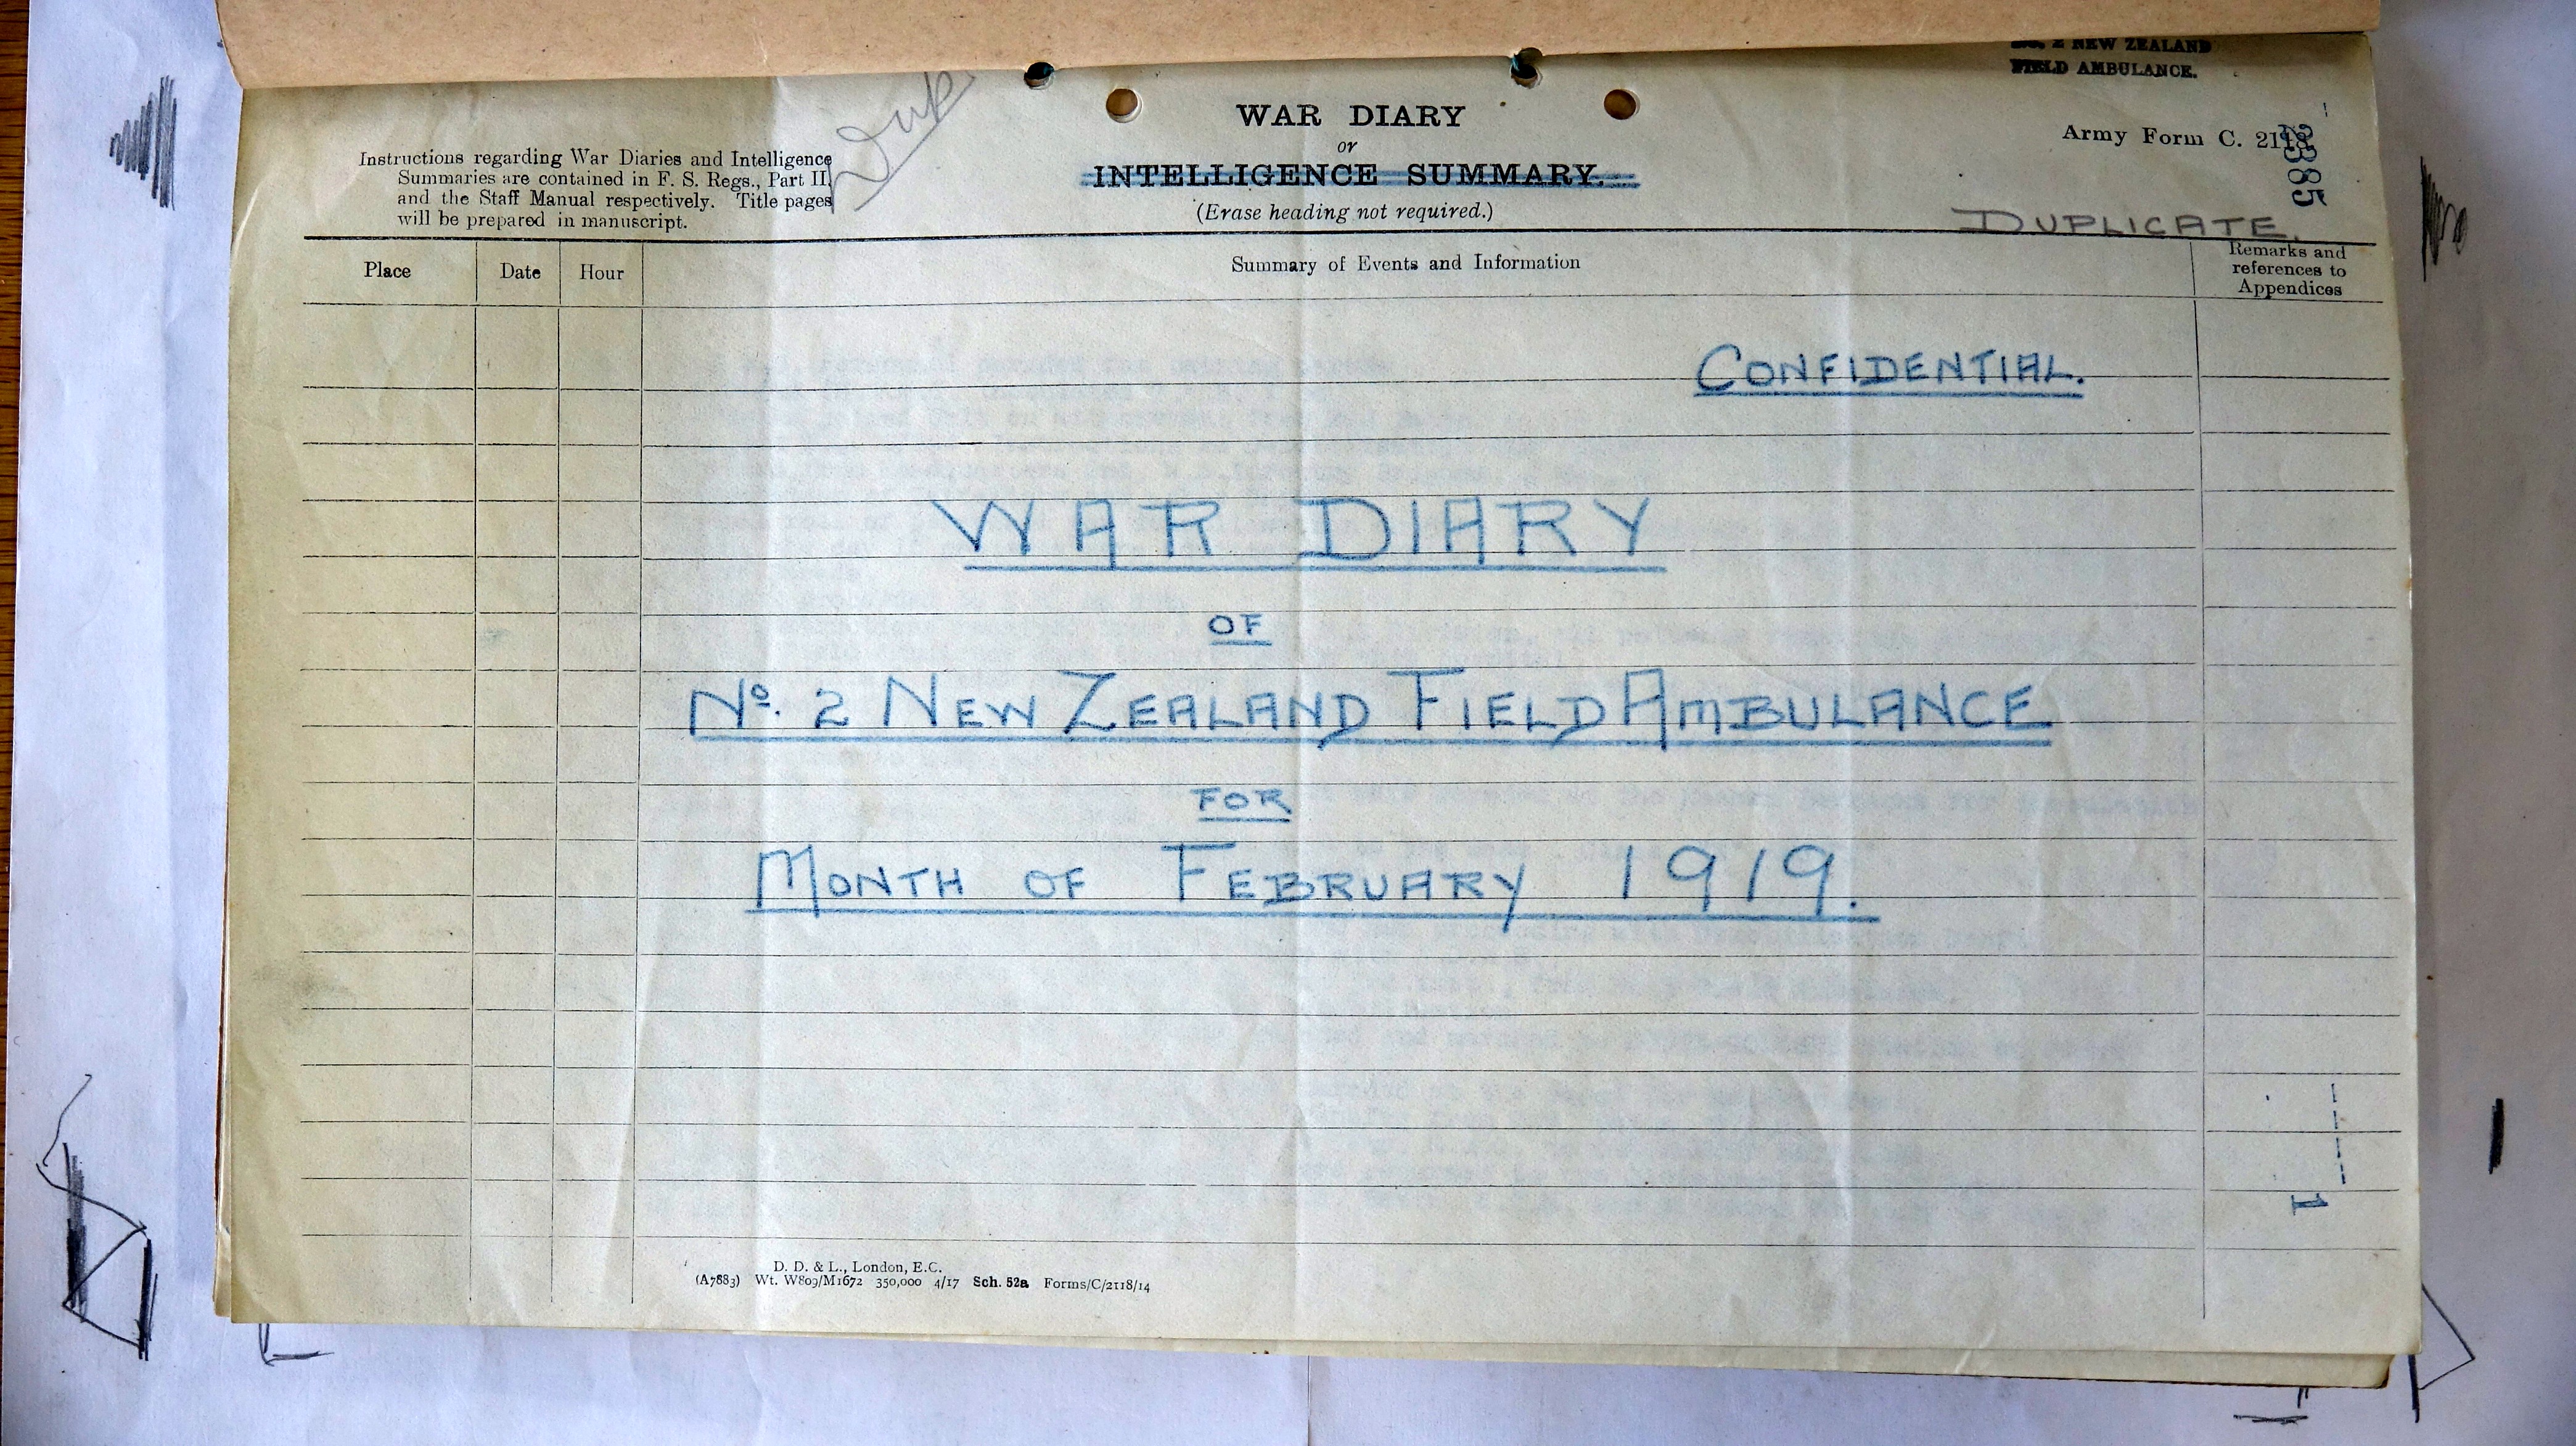 No. 2 NEW ZEALAND
FIELD AMBULANCE.
Dup
WAR DIARY
or
INTELLIGENCE SUMMARY.
(Erase heading not required.)
Instructions regarding War Diaries and Intelligence
Summaries are contained in F. S. Regs., Part II.
and the Staff Manual respectively. Title pages
will be prepared in manuscript.
Army Form C. 2118.
DUPLICATE.
Place
Date
Hour
Summary of Events and Information
Remarks and
references to
Appendices
CONFIDENTIAL.
WAR DIARY
OF
No. 2 NEW ZEALAND FIELD AMBULANCE
FOR
MONTH OF FEBRUARY 1919.
1
D. D. & L., London, E.C.
(A7883) Wt. W809/M1672 350,000 4/17 Sch. 52a Forms/C/2118/14